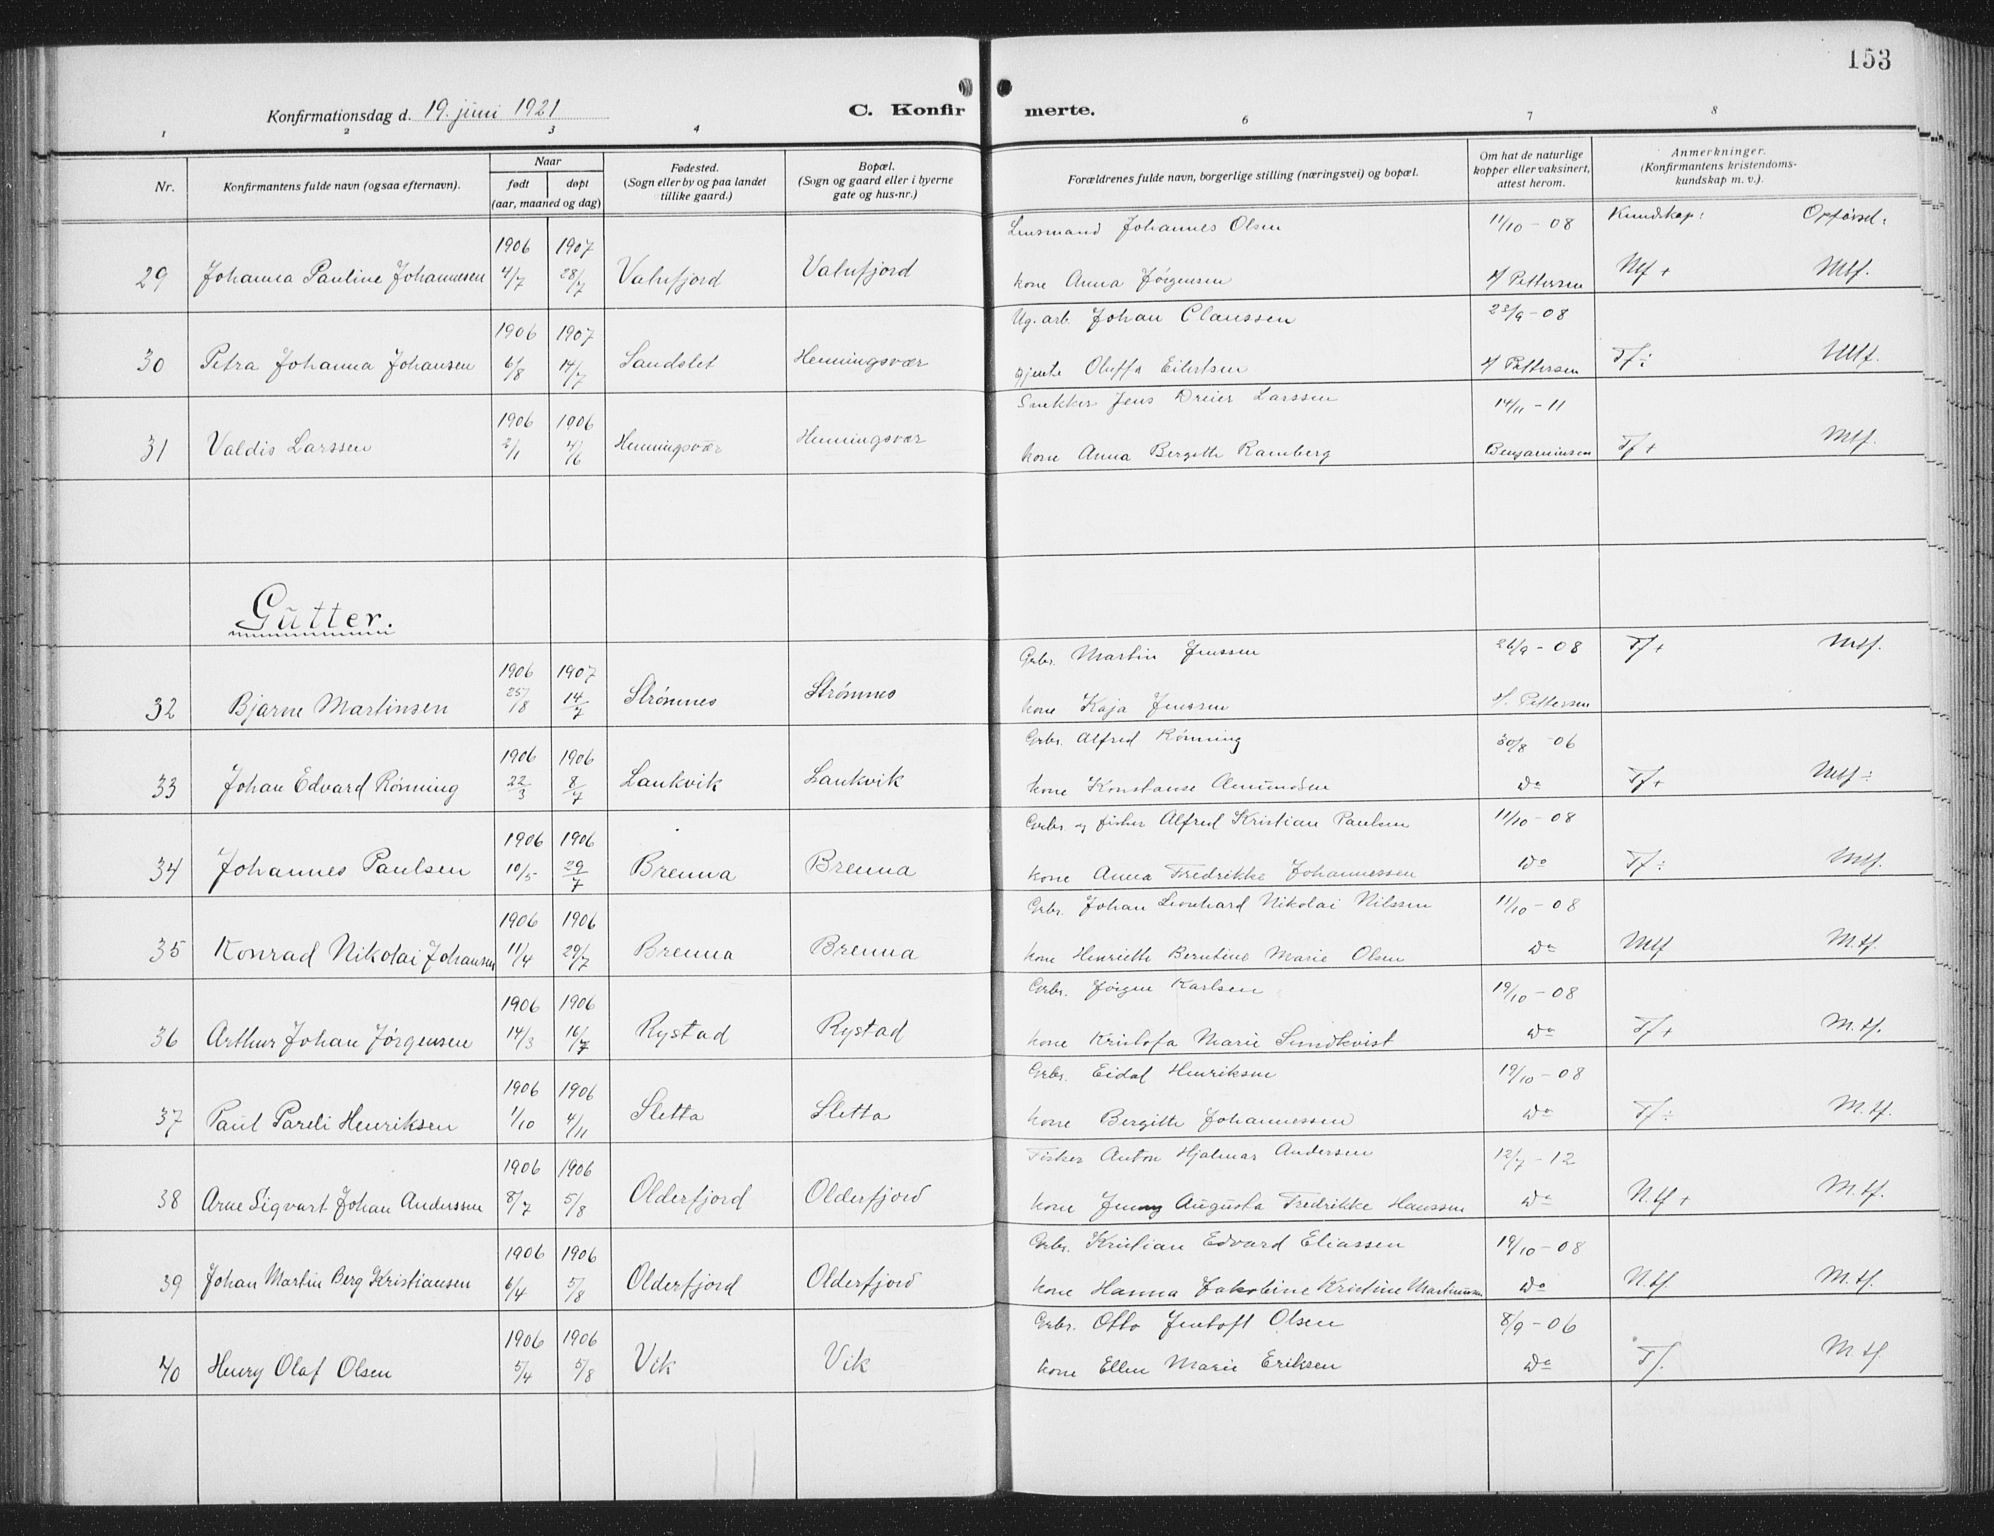 153
Konfirmationsdag d. 19. juni 1921
C. Konfirmerte.
1 2 3 4 6 7 8
Nr.
Konfirmantens fulde navn (ogsaa efternavn).
Naar
født døpt
(aar, maaned og dag)
Fødested.
(Sogn eller by og paa landet
tillike gaard.)
Bopæl.
(Sogn og gaard eller i byerne
gate og hus-nr.)
Forældrenes fulde navn, borgerlige stilling (næringsvei) og bopæl.
Om hat de naturlige
kopper eller vaksinert,
attest herom.
Anmerkninger.
(Konfirmantens kristendoms-
kundskap m. v.).
Kundskap: Opførsel:
1906 1907 Lensmand Johannes Olsen 11/10 - 08
29 Johanna Pauline Johannesen 4/7 28/7 Valnfjord Valnfjord kone Anna Jørgensen s/ Pettersen Ntf + Mtf.
1906 1907 Ug. arb. Johan Claussen 23/9 - 08
30 Petra Johanna Johansen 6/8 14/7 Sandslet Henningsvær pjente Oluffa Eilertsen s/ Pettersen Tf ÷ Mtf.
1906 1906 Snekker Jens Dreier Larssen 14/11 - 11
31 Valdis Larssen 2/1 4/6 Henningsvær Henningsvær kone Anna Bergitte Ramberg Benjaminsen Tf + Mtf.
Gutter.
1906 1907 Grbr. Martin Jenssen 26/9 - 08 Tf + Mtf.
32 Bjarne Martinsen 25/8 14/7 Strømnes Strømnes kone Kaja Jenssen s/. Pettersen
1906 1906 Grbr. Alfred Rønning 30/8 - 06
33 Johan Edvard Rønning 22/3 8/7 Laukvik Laukvik kone Konstanse Amundsen Do Tf + Mtf ÷
1906 1906 Grbr. og fisker Alfred Kristian Paulsen 11/10 - 08
34 Johannes Paulsen 10/5 29/7 Brenna Brenna kone Anna Fredrikke Johannessen Do Tf ÷ Mtf.
1906 1906 Grbr. Johan Leonhard Nikolai Nilssen 11/10 - 08
35 Konrad Nikolai Johansen 11/4 29/7 Brenna Brenna kone Henriette Berntine Marie Olsen Do Mtf M.tf.
1906 1906 Grbr. Jørgen Karlsen 19/10 - 08
36 Arthur Johan Jørgensen 14/3 16/7 Rystad Rystad kone Kristofa Marie Sundkvist Do Tf + M.tf.
1906 1906 Grbr. Eidal Henriksen 19/10 - 08
37 Paul Pareli Henriksen 1/10 4/11 Sletta Sletta kone Bergitte Johannessen Do Tf ÷ M.tf.
1906 1906 Fisker Anton Hjalmar Andersen 12/7 - 12
38 Arne Sigvart Johan Anderssen 8/7 5/8 Olderfjord Olderfjord kone Jenny Augusta Fredrikke Hanssen Do N.tf + M.tf.
1906 1906 Grbr. Kristian Edvard Eliassen 19/10 - 08
39 Johan Martin Berg Kristiansen 6/4 5/8 Olderfjord Olderfjord kone Hanna Jakobine Kristine Martinussen Do N.tf M.tf.
1906 1906 Grbr. Otto Jentoft Olsen 8/9 - 06
40 Henry Olaf Olsen 5/4 5/8 Vik Vik kone Ellen Marie Eriksen Do Tf. M.tf